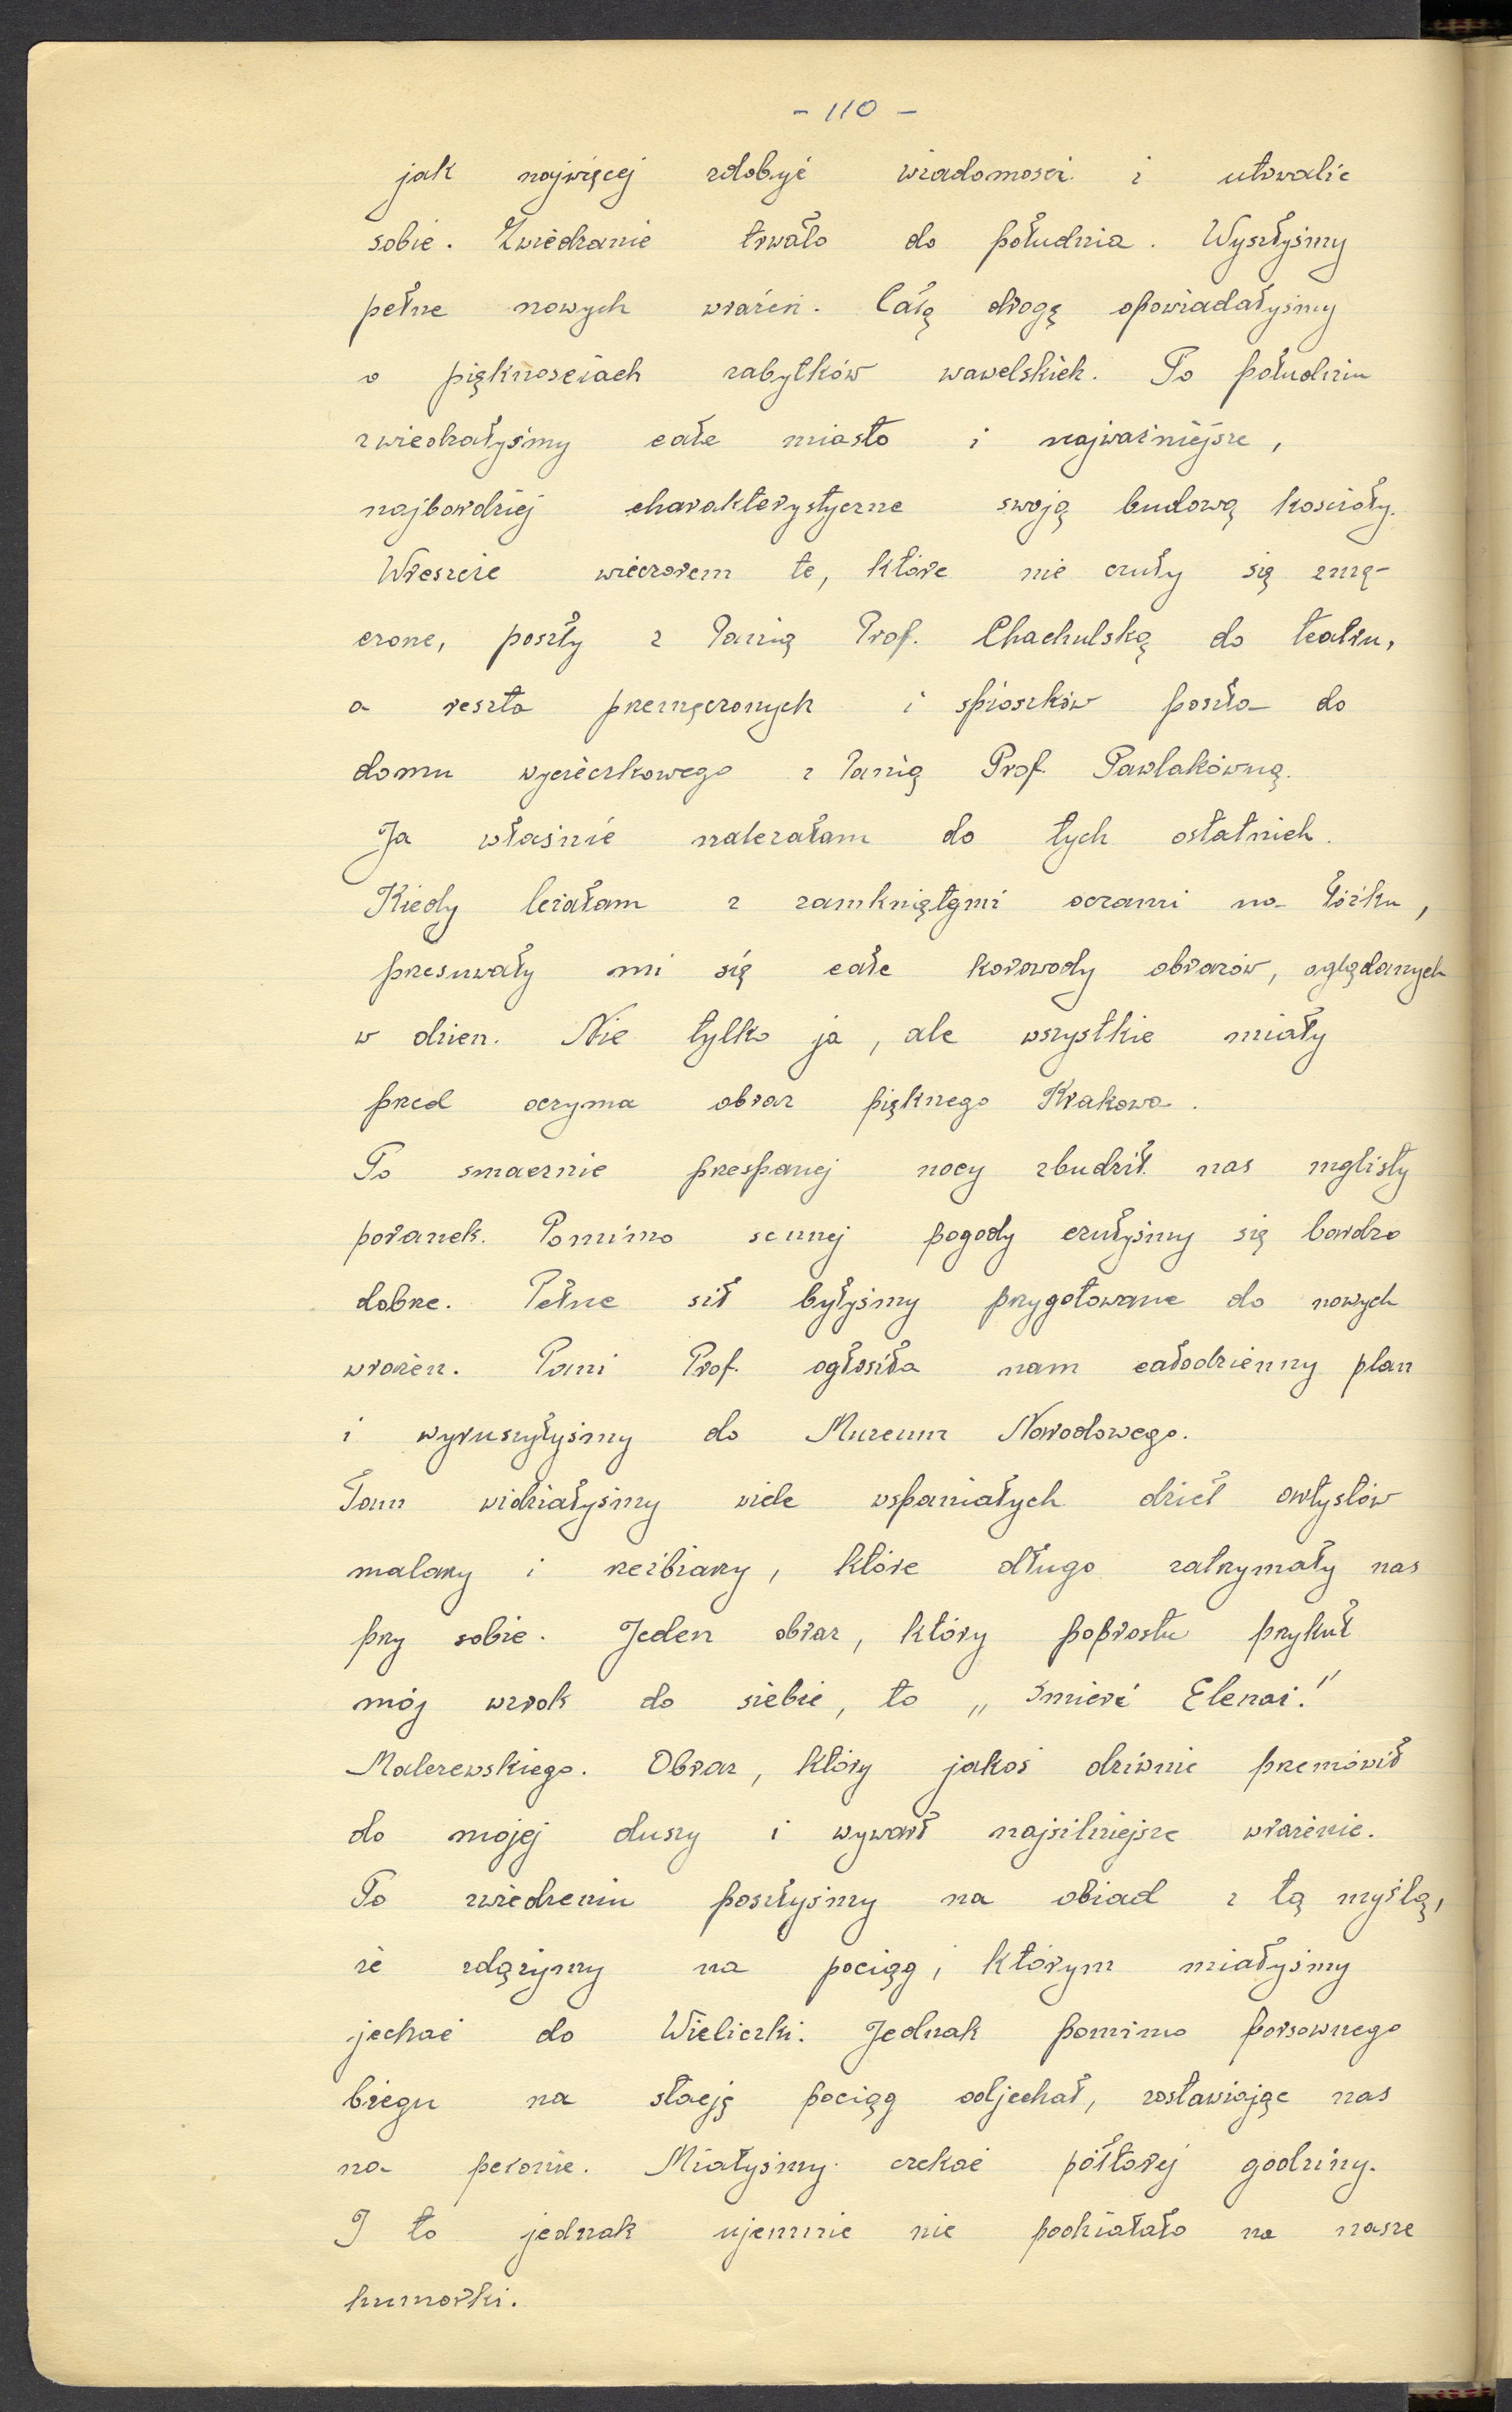 - 110 -
jak najwięcej zdobyć wiadomości i utrwalić
sobie. Zwiedzanie trwało do południa. Wyszłyśmy
pełne nowych wrażeń. Całą drogę opowiadałyśmy
o pięknościach zabytków wawelskich. Po południu
zwiedzałyśmy całe miasto i najważniejsze,
najbardziej charakterystyczne swoją budową kościoły.
Wreszcie wieczorem te, które nie czuły się zmę-
czone, poszły z Panią Prof. Chachulską do teatru,
a reszta przemęczonych i śpioszków poszła do
domu wycieczkowego z Panią Prof. Pawlakówną.
Ja właśnie należałam do tych ostatnich.
Kiedy leżałam z zamkniętymi oczami na łóżku,
przesuwały mi się całe korowody obrazów, oglądanych
w dzien. Nie tylko ja, ale wszystkie miały
przed oczyma obraz pięknego Krakowa.
Po smacznie przespanej nocy zbudził nas mglisty
poranek. Pomimo sennej pogody czułyśmy się bardzo
dobrze. Pełne sił byłyśmy przygotowane do nowych
wrażen. Pani Prof. ogłosiła nam całodzienny plan
i wyruszyłyśmy do Muzeum Narodowego.
Tam widziałyśmy wiele wspaniałych dzieł artystów
malarzy i rzeźbiarzy, które długo zatrzymały nas
przy sobie. Jeden obraz, który poprostu przykuł
mój wzrok do siebie, to „Śmierć Elenai."
Malczewskiego. Obraz, który jakoś dziwnie przemówił
do mojej duszy i wywarł najsilniejsze wrażenie.
Po zwiedzeniu poszłyśmy na obiad z tą myślą,
że zdążymy na pociąg, którym miałyśmy
jechać do Wieliczki. Jednak pomimo forsownego
biegu na stację pociąg odjechał, zostawiając nas
na peronie. Miałyśmy czekać półtorej godziny.
I to jednak ujemnie nie podziałało na nasze
humorki.